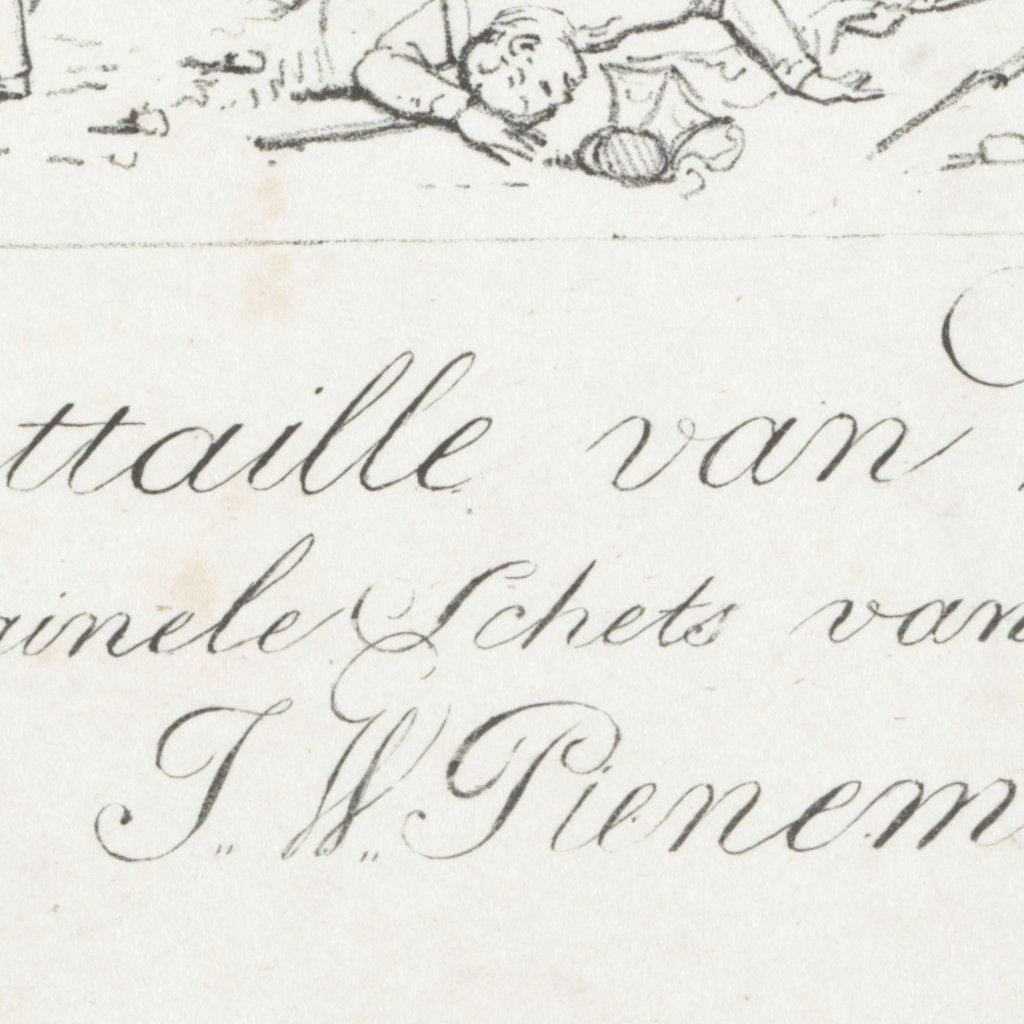 ttaille van
ginele Schets van
J. W. Pienem